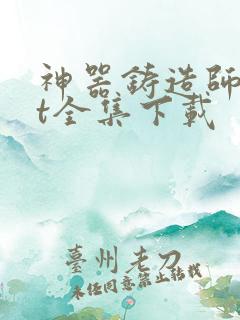 神器鋳造師
t全集下載
臺州老刀
未任同意禁止轉載